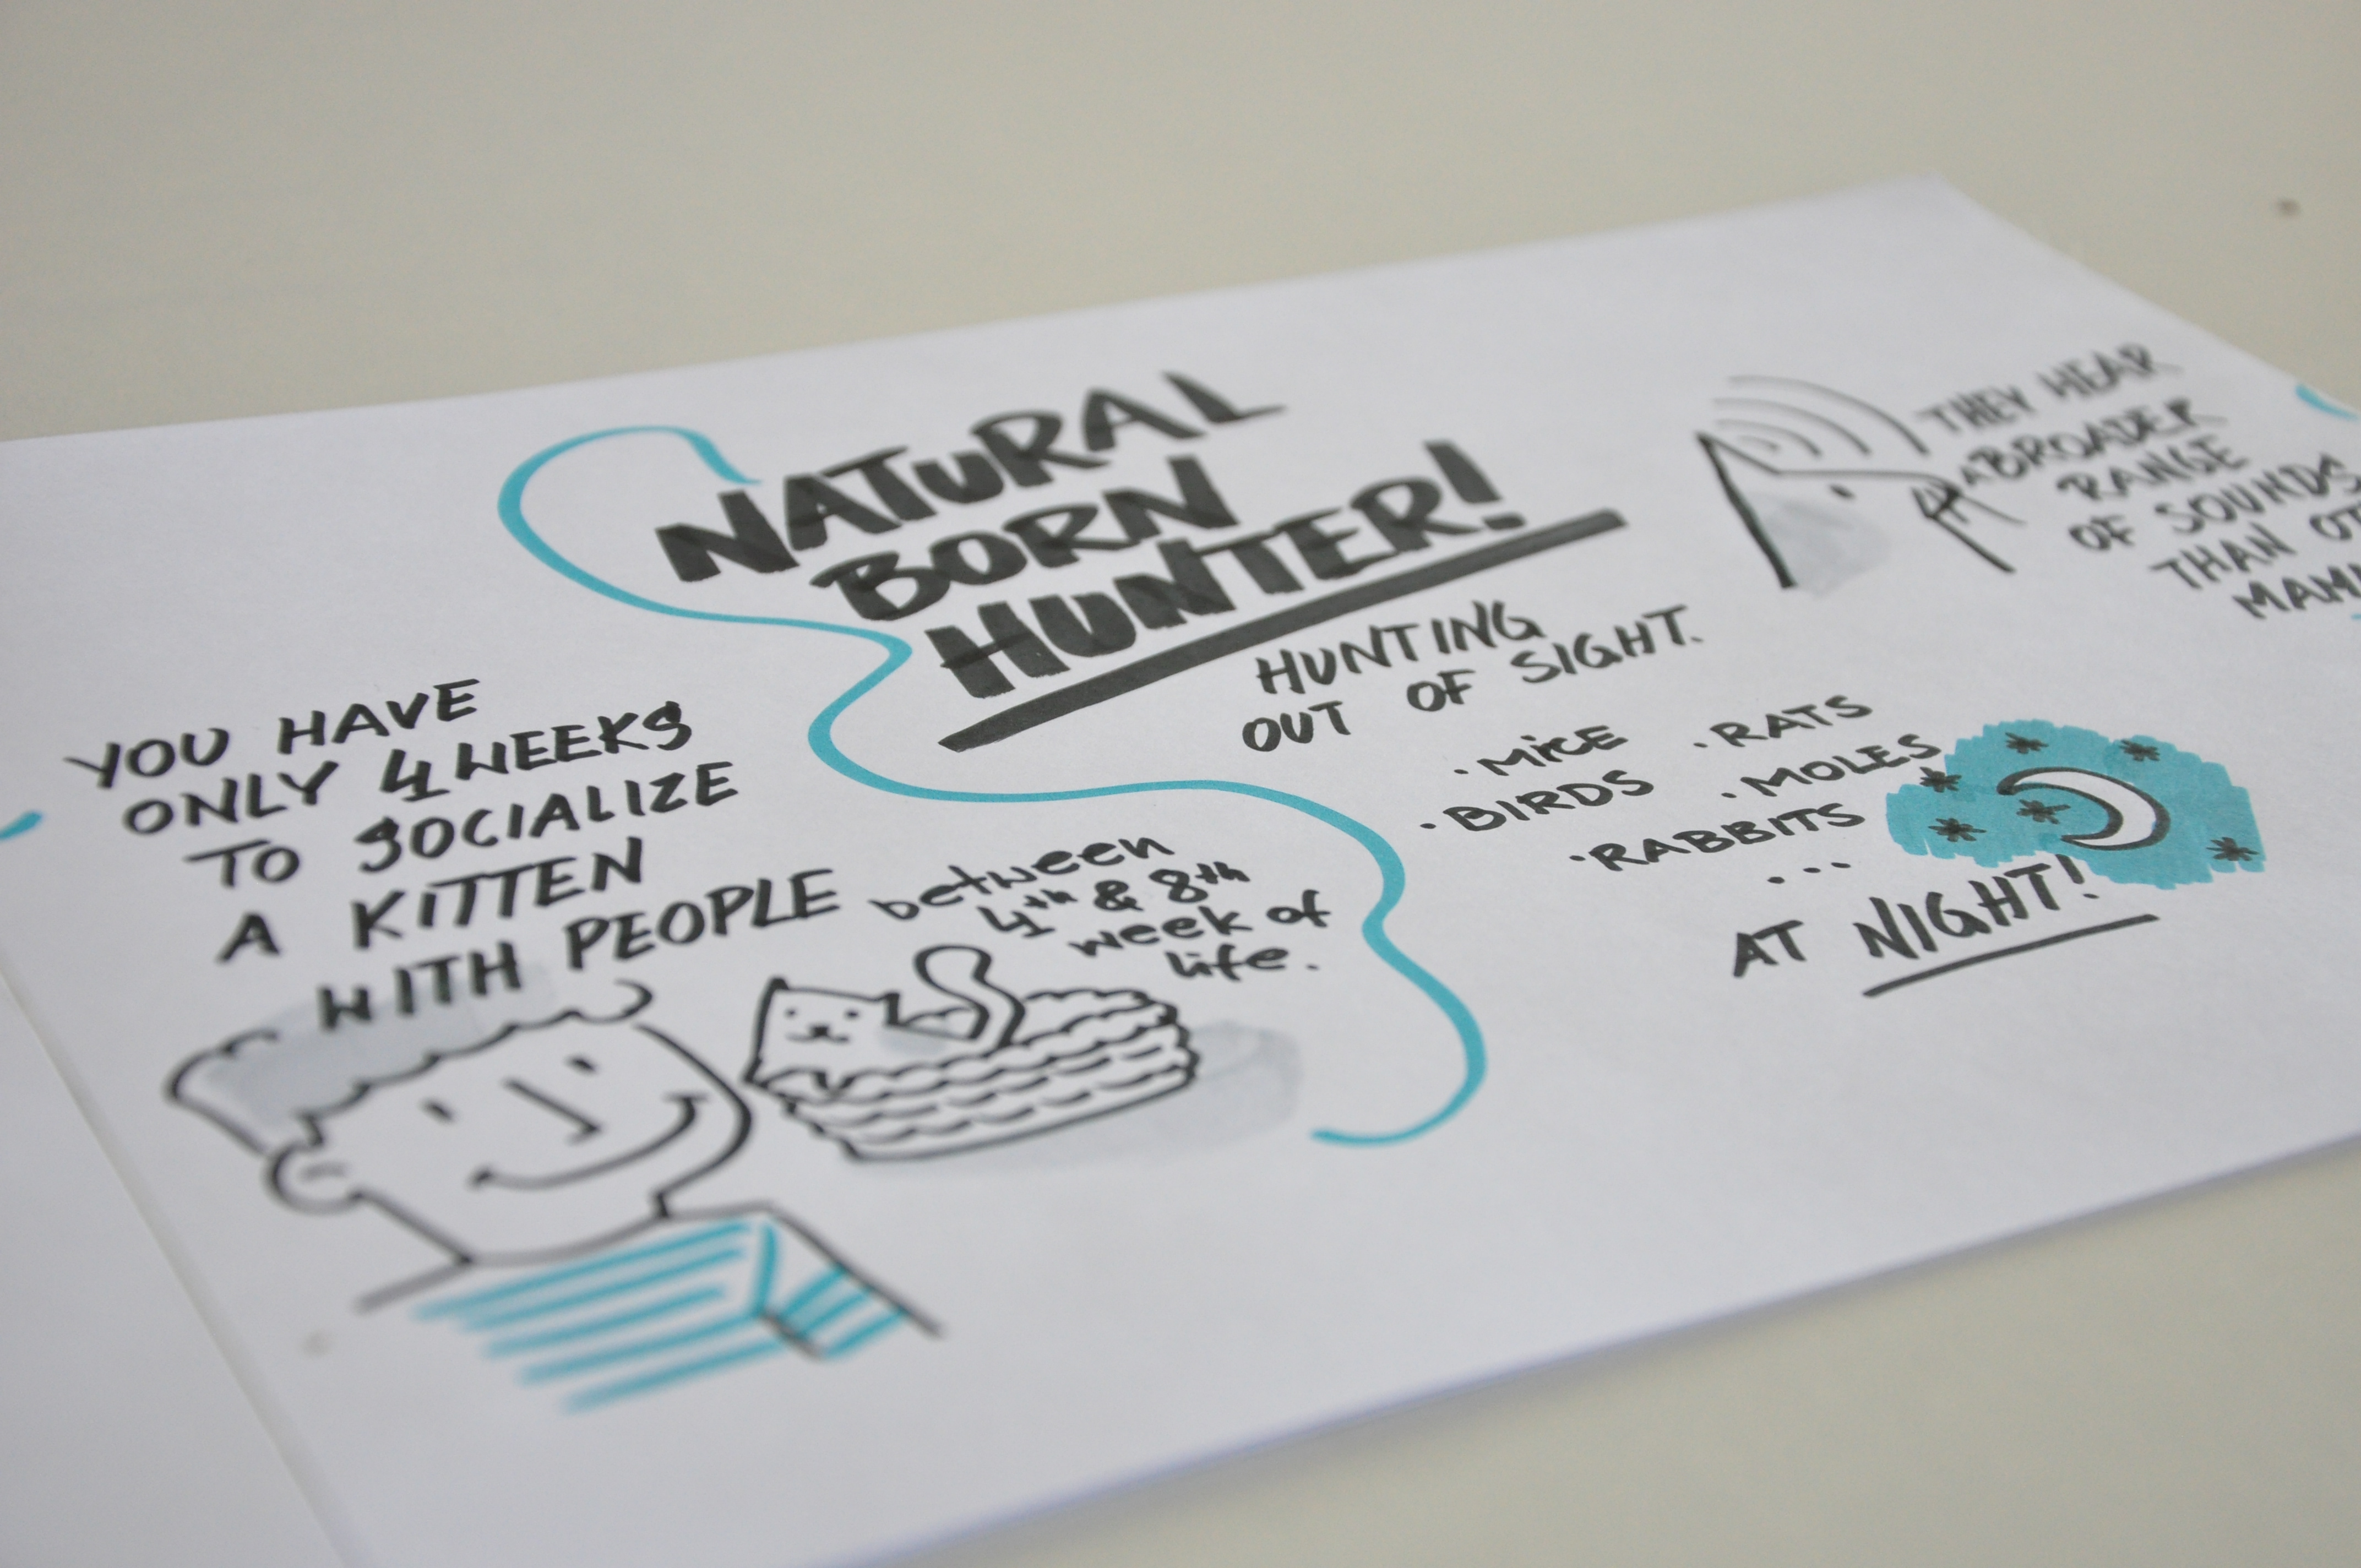 NATURAL
BORN
HUNTER!
HUNTING
OUT OF SIGHT.
· MiCE · RATS
· BIRDS · MOLES
· RABBITS
...
AT NIGHT!
THEY HEAR
A BROADER
RANGE
OF SOUNDS
THAN
YOU HAVE
ONLY 4 WEEKS
TO SOCIALIZE
A KiTTEN
WITH PEOPLE
between
4th & 8th
week of
life.